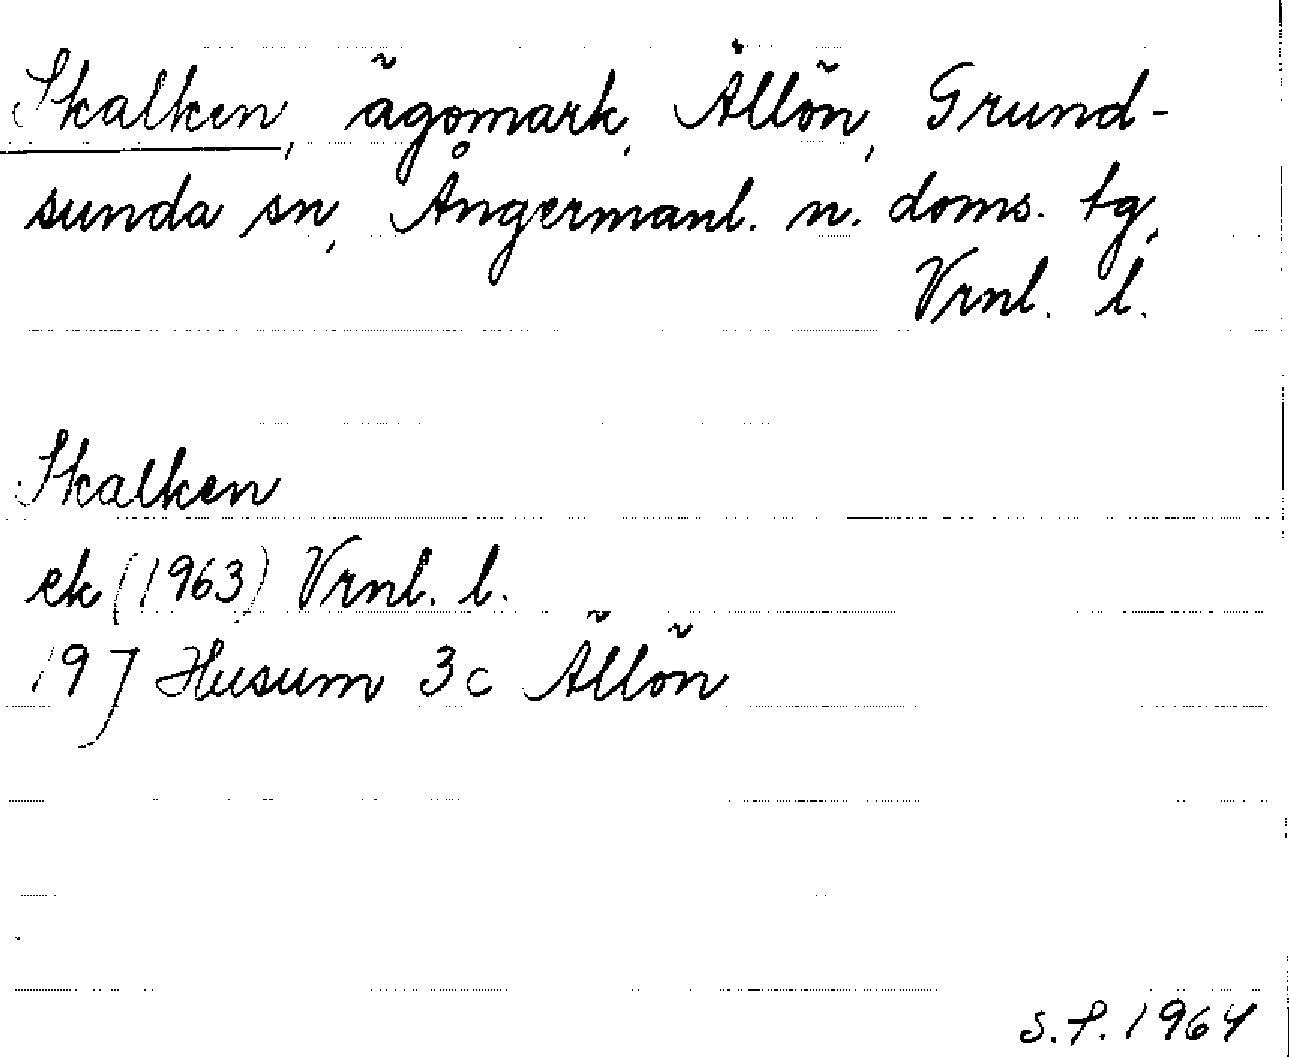 Skalken, ägomark, Ällön, Grund-
sunda sn, Ångermanl. n. doms. tg,
Vrnl. l.
Skalken
ek (1963) Vrnl. l.
19J Husum 3c Ällön
S.P. 1964